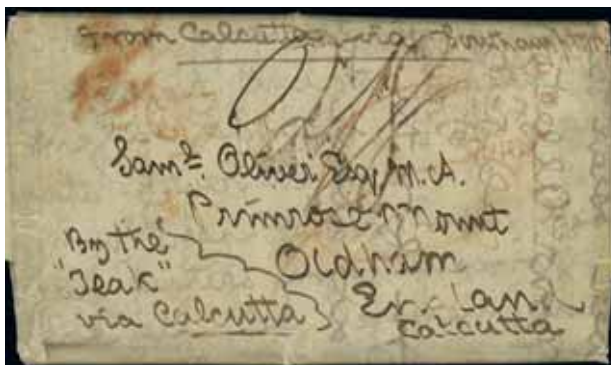 From Calcutta via Southampton
Saml. Oliver Esq M.A.
Primrose Mount
Oldham
England
Calcutta
By the
"Teak"
via Calcutta